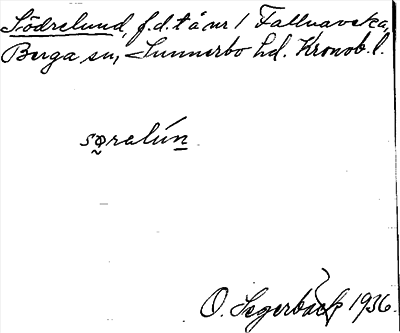 Södrelund, f.d.t å nr 1 Fallnaveka,
Berga sn, Sunnerbo hd. Kronob. l.
søralún
O. Segerbäck 1936.